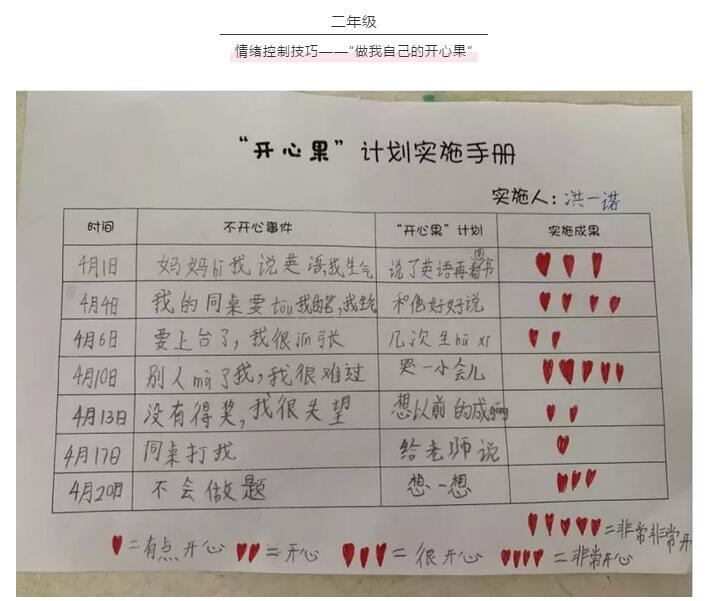 二年级
情绪控制技巧——“做我自己的开心果”
“开心果”计划实施手册
实施人：洪一诺
时间 不开心事件 “开心果”计划 实施成果
4月1日 妈妈bi我说英语,我生气 说了英语再看图书
4月4日 我的同桌要tou我的,我生气 和他好好说
4月6日 要上台了，我很jin张 几次生hū xī
4月10日 别人mà了我，我很难过 哭一小会儿
4月13日 没有得奖，我很失望 想以前的成gōng
4月17日 同桌打我 给老师说
4月20日 不会做题 想一想
=非常非常开
=有点开心 =开心 =很开心 =非常开心